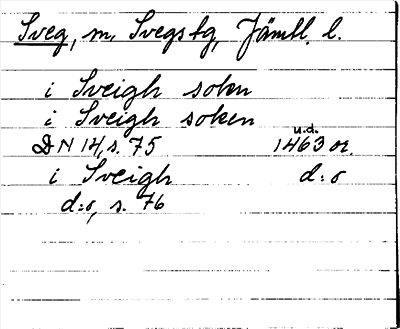 Sveg, m, Svegs tg, Jämtl. l.
i Sveigh sokn
i Sveigh soken
DN 14, s. 75 1463 or. u.d.
i Sveigh d:o
d:o, s. 76